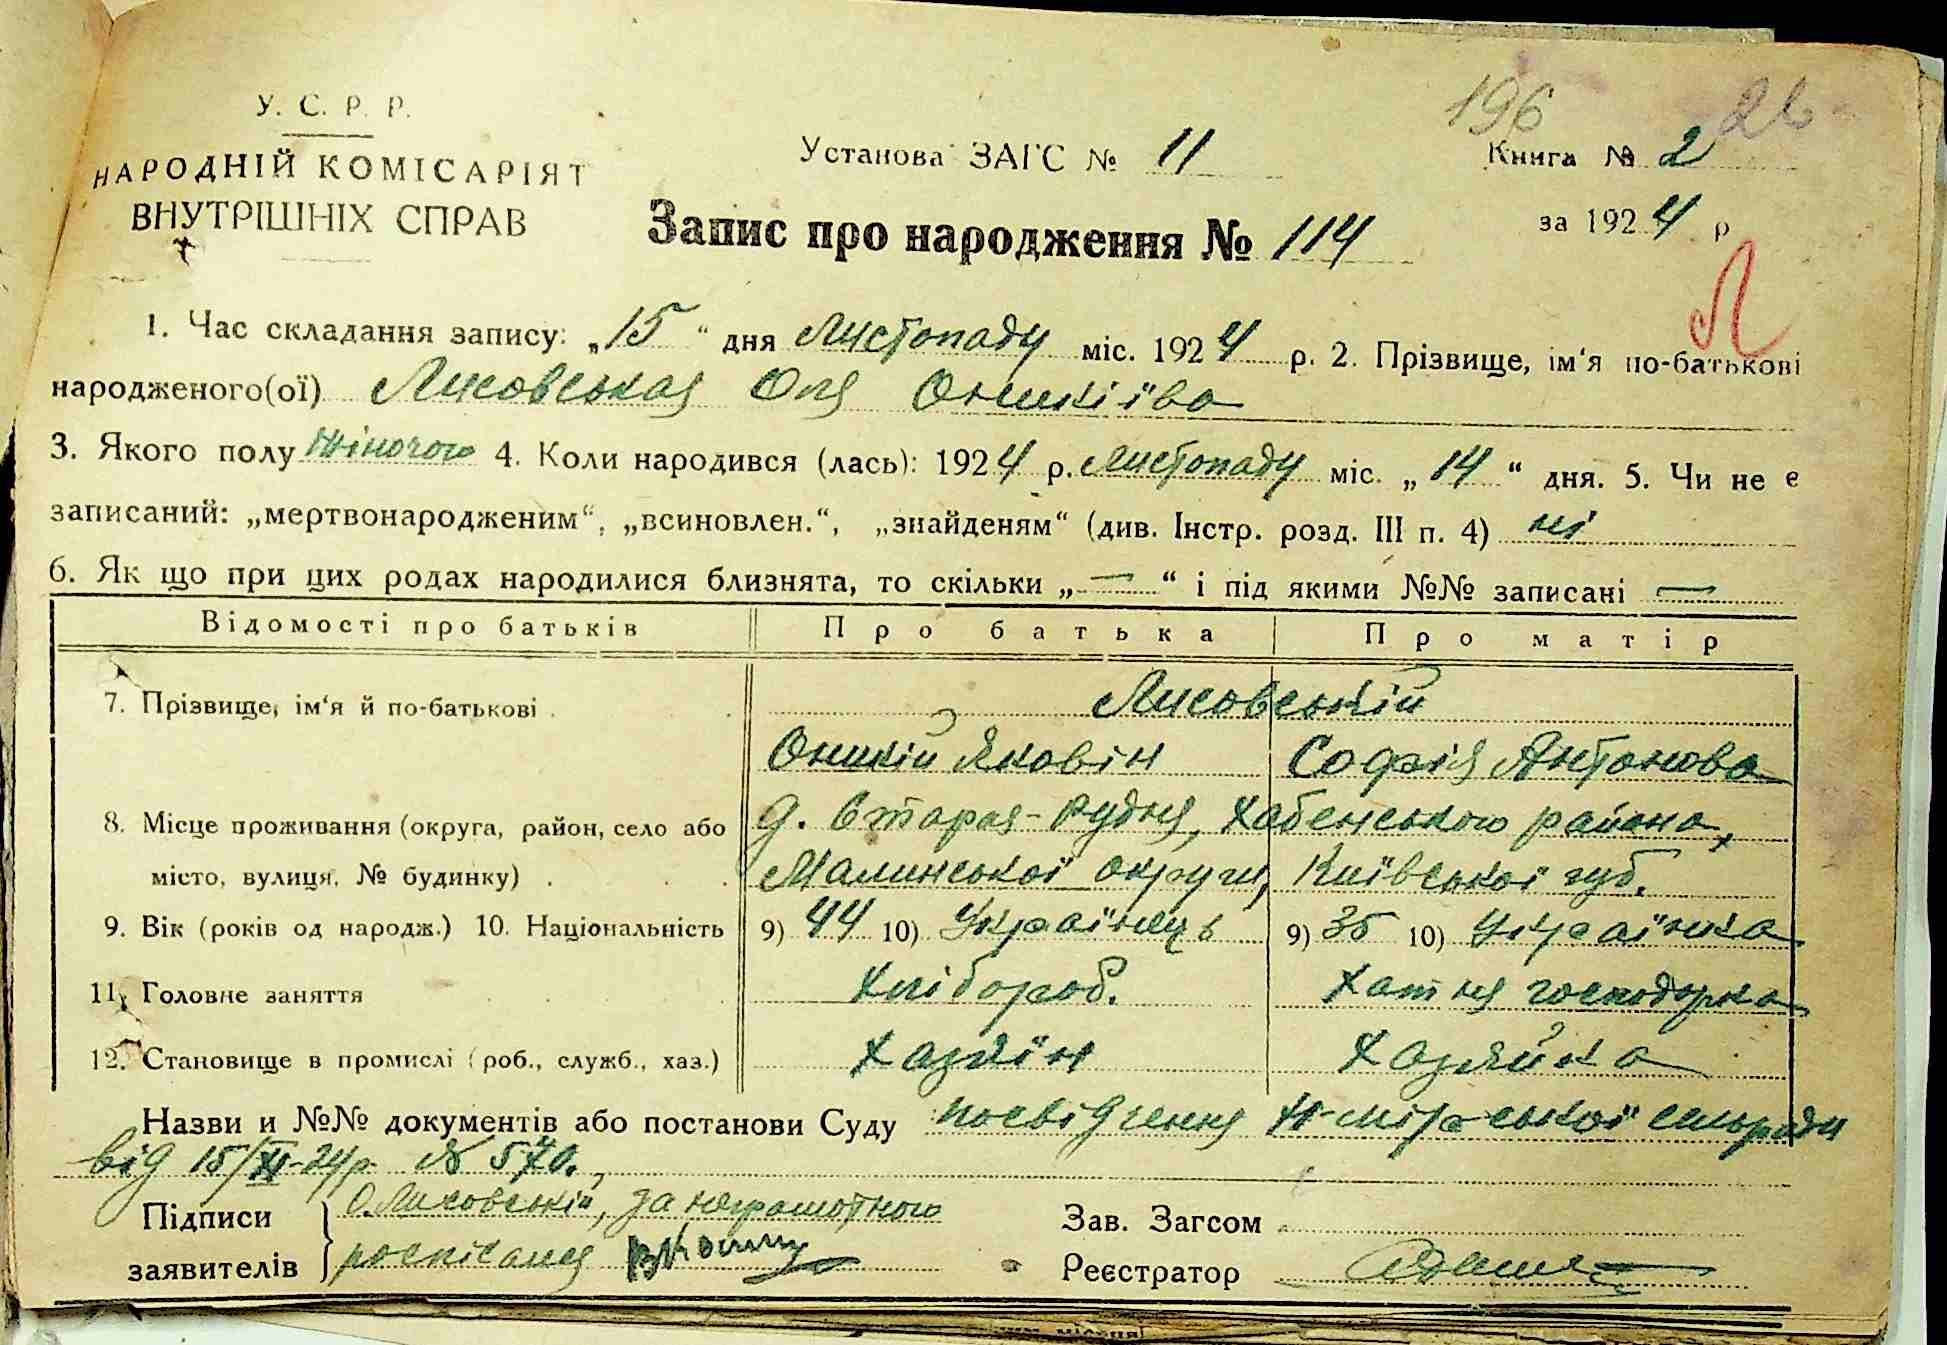 196 26
У. С. Р. Р.
НАРОДНІЙ КОМІСАРІЯТ
ВНУТРІШНІХ СПРАВ
Установа ЗАГС № 11
Книга № 2
за 1924 р
Запис про народження № 114
Л
1. Час складання запису: „15“ дня Листопаду міс. 1924 р. 2. Прізвище, ім‘я по-батькові
народженого(ої) Лисовськая Оля Оникіїва
3. Якого полу жіночого 4. Коли народився (лась): 1924 р. Листопаду міс. „14“ дня. 5. Чи не є
записаний: „мертвонародженим“, „всиновлен.“, „знайденям“ (див. Інстр. розд. III п. 4) ні
6. Як що при цих родах народилися близнята, то скільки „—“ і під якими №№ записані —
Відомості про батьків Про батька Про матір
7. Прізвище, ім‘я й по-батькові Лисовській
Оникій Яковін Софія Антонова
8. Місце проживання (округа, район, село або д. Старая-Рудня, Хабенського района,
місто, вулиця, № будинку) Малинської округи, Київської губ.
9. Вік (років од народж.) 10. Національність 9) 44 10) Українець 9) 35 10) Українка
11. Головне заняття Хлібороб. Хатня господарка
12. Становище в промислі (роб., служб., хаз.) Хазяїн Хазяйка
Назви и №№ документів або постанови Суду посвідчення сільради
від 15/XI-24р. № 570.,
Підписи О. Лисовській, за неграмотного
заявителів росписався
Зав. Загсом
Реєстратор